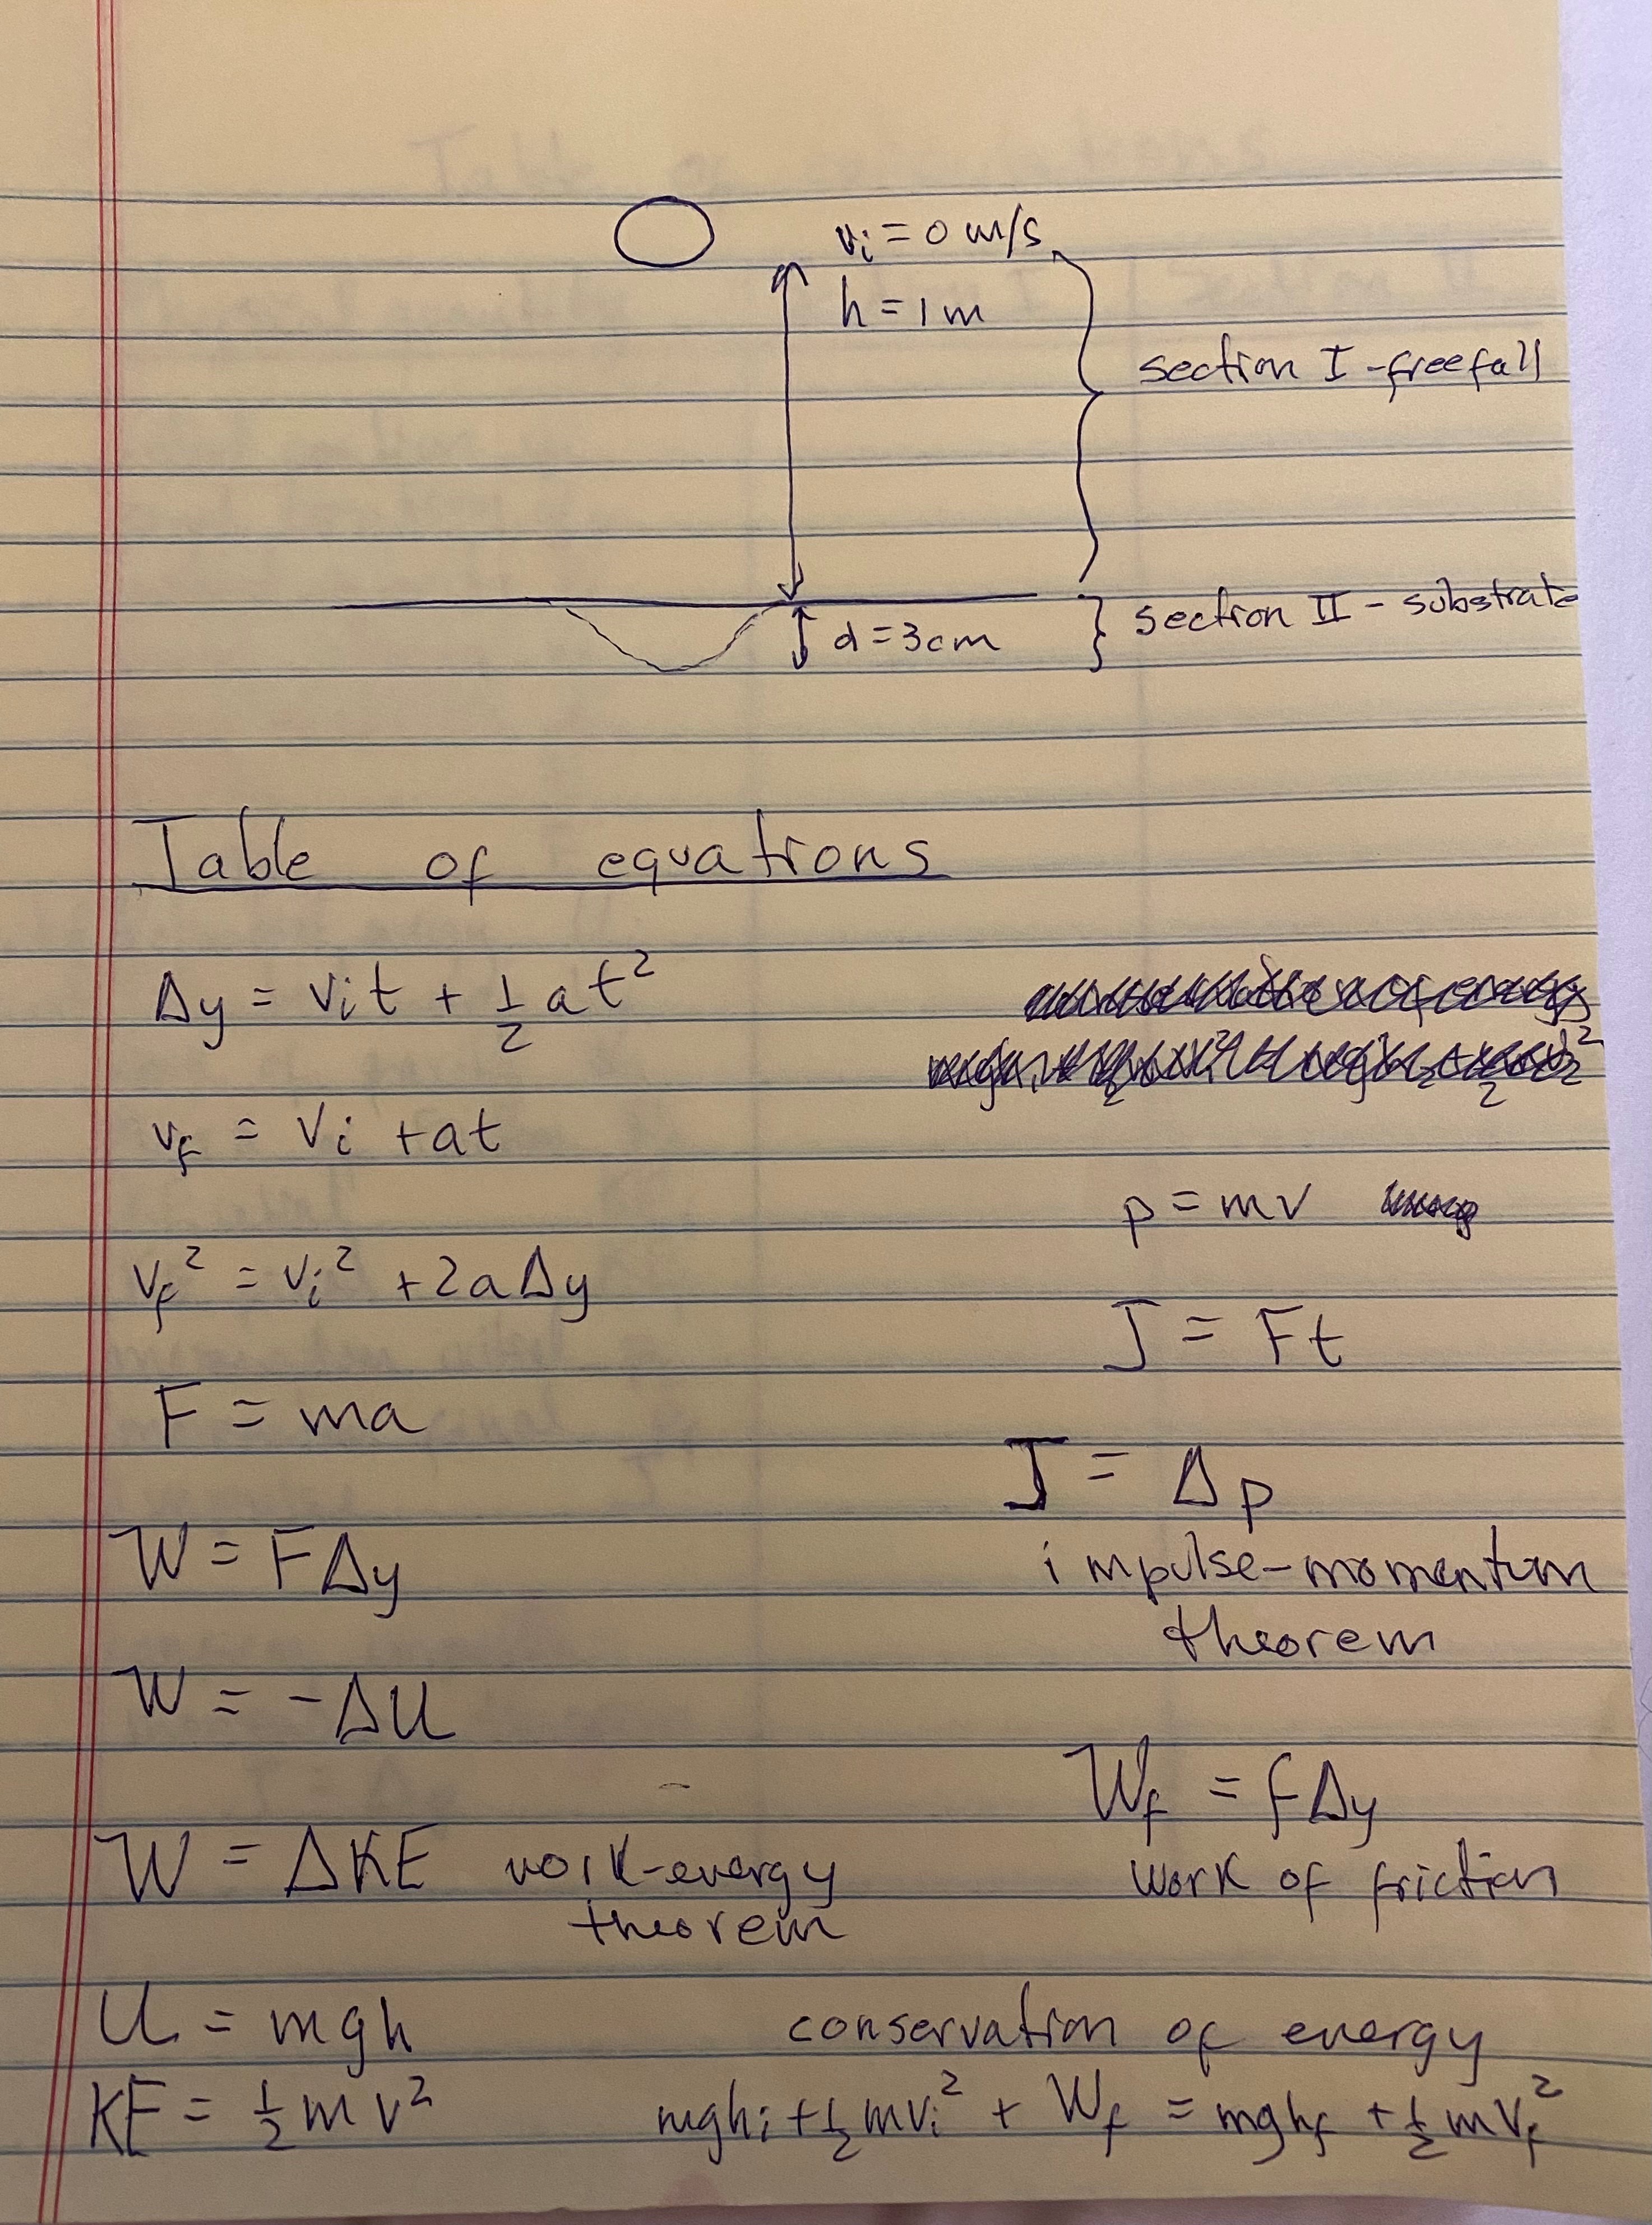 vᵢ = 0 m/s
h = 1 m
section I - freefall
d = 3cm
section II - substrate
Table of equations
Δy = vᵢt + ½at²
v_f = vᵢ + at
p = mv
v_f² = vᵢ² + 2aΔy
J = Ft
F = ma
J = Δp
impulse-momentum
theorem
W = FΔy
W = -ΔU
W_f = fΔy
work of friction
W = ΔKE work-energy
theorem
U = mgh
KE = ½mv²
conservation of energy
mghᵢ + ½mvᵢ² + W_f = mgh_f + ½mv_f²